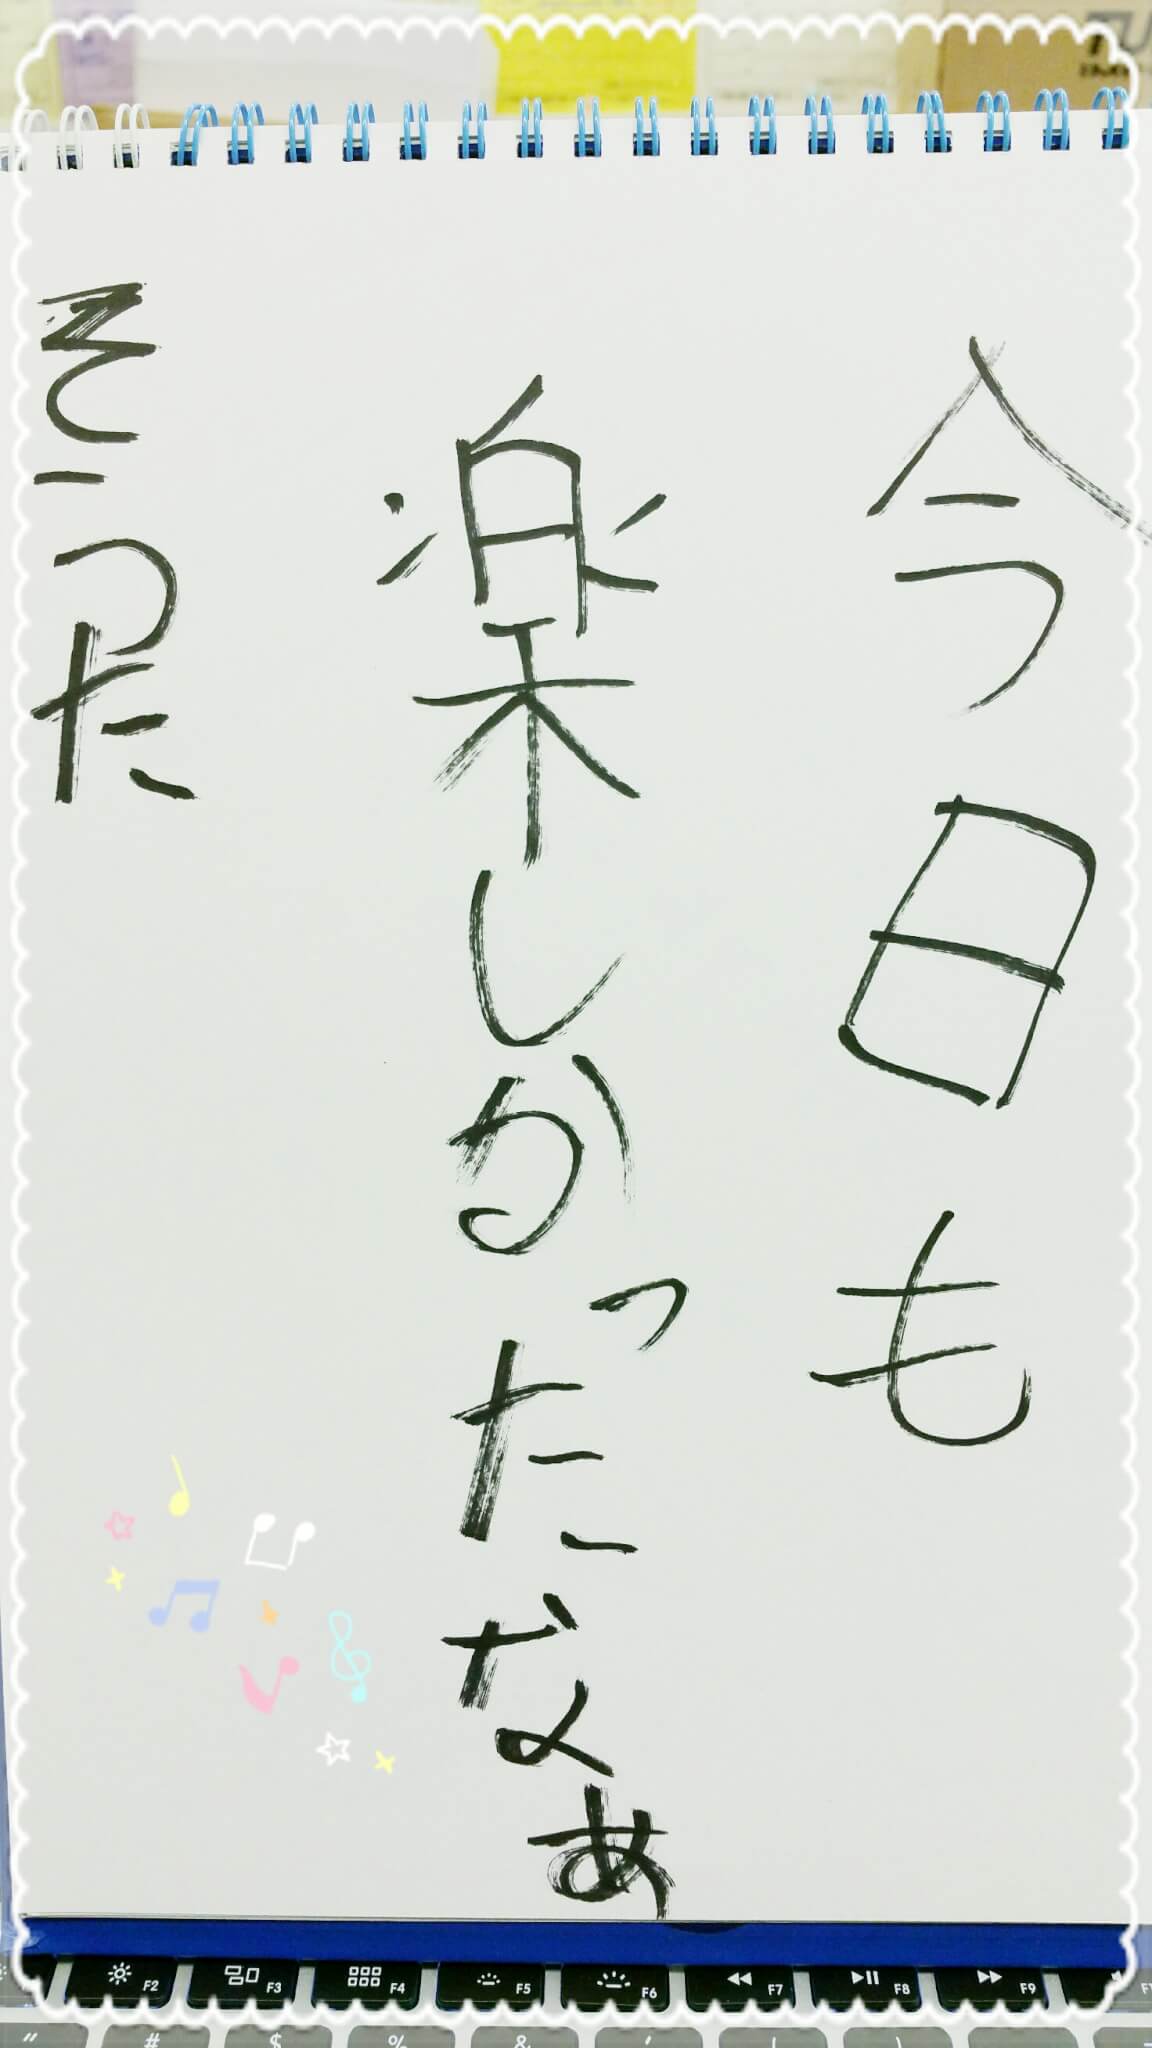 今日も
楽しかったなぁ
そうた
F2 F3 F4 F5 F6 F7 F8 F9
" # $ % & ' ( )